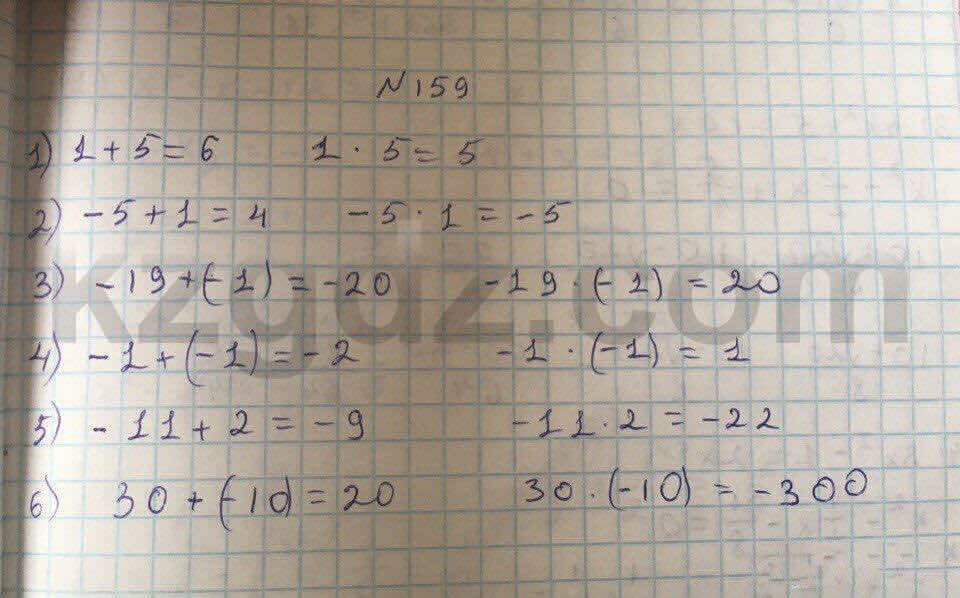 N159
1) 1 + 5 = 6 1 · 5 = 5
2) - 5 + 1 = 4 - 5 · 1 = - 5
3) - 19 + (- 1) = - 20 - 19 · (- 1) = 20
4) - 1 + (- 1) = - 2 - 1 · (- 1) = 1
5) - 11 + 2 = - 9 - 11 · 2 = - 22
6) 30 + (- 10) = 20 30 · (- 10) = - 300
kzgdz.com